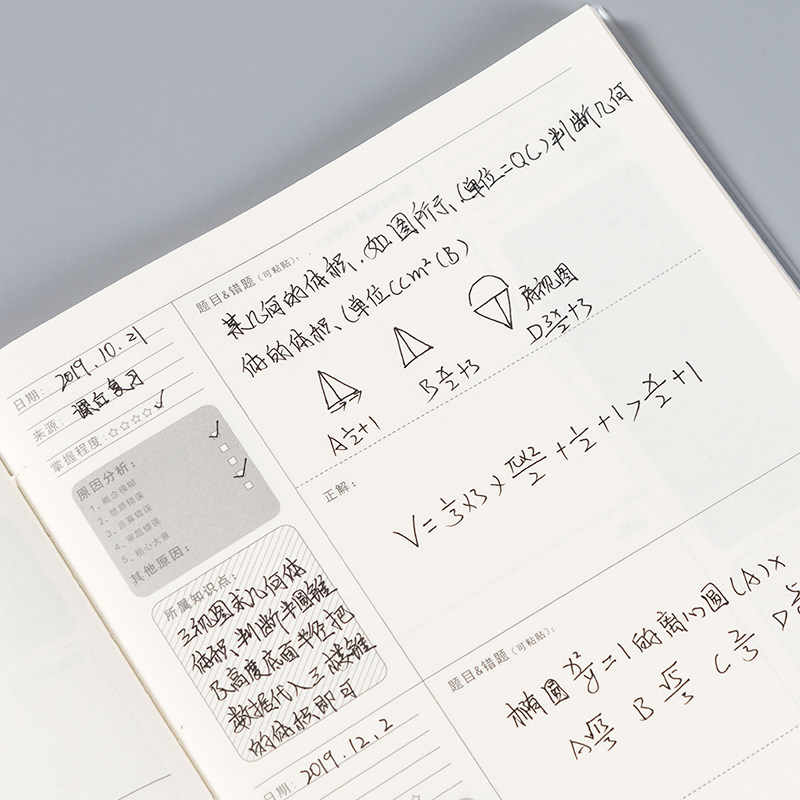 日期: 2019.10.21
来源: 课后复习
掌握程度:☆☆☆☆✓
原因分析:
1、概念模糊
2、思路错误
3、运算错误
4、审题错误
5、粗心大意
其他原因:
所属知识点:
三视图求几何体
体积,判断半圆锥
及高度底面半径把
数据代入三棱锥
的体积即可
题目&错题(可粘贴):
某几何的体积.如图所示、(单位=QC)判断几何
体的体积、(单位CCm²(B)
俯视图
A½+1
Bπ/2+3
D3π/2+3
正解:
V=⅓×3×π×2/2+½+1>π/2+1
日期: 2019.12.2
题目&错题(可粘贴):
椭圆x²/y=1的离心圆(A)x
A√13/3 B√5/3 C⅔ D